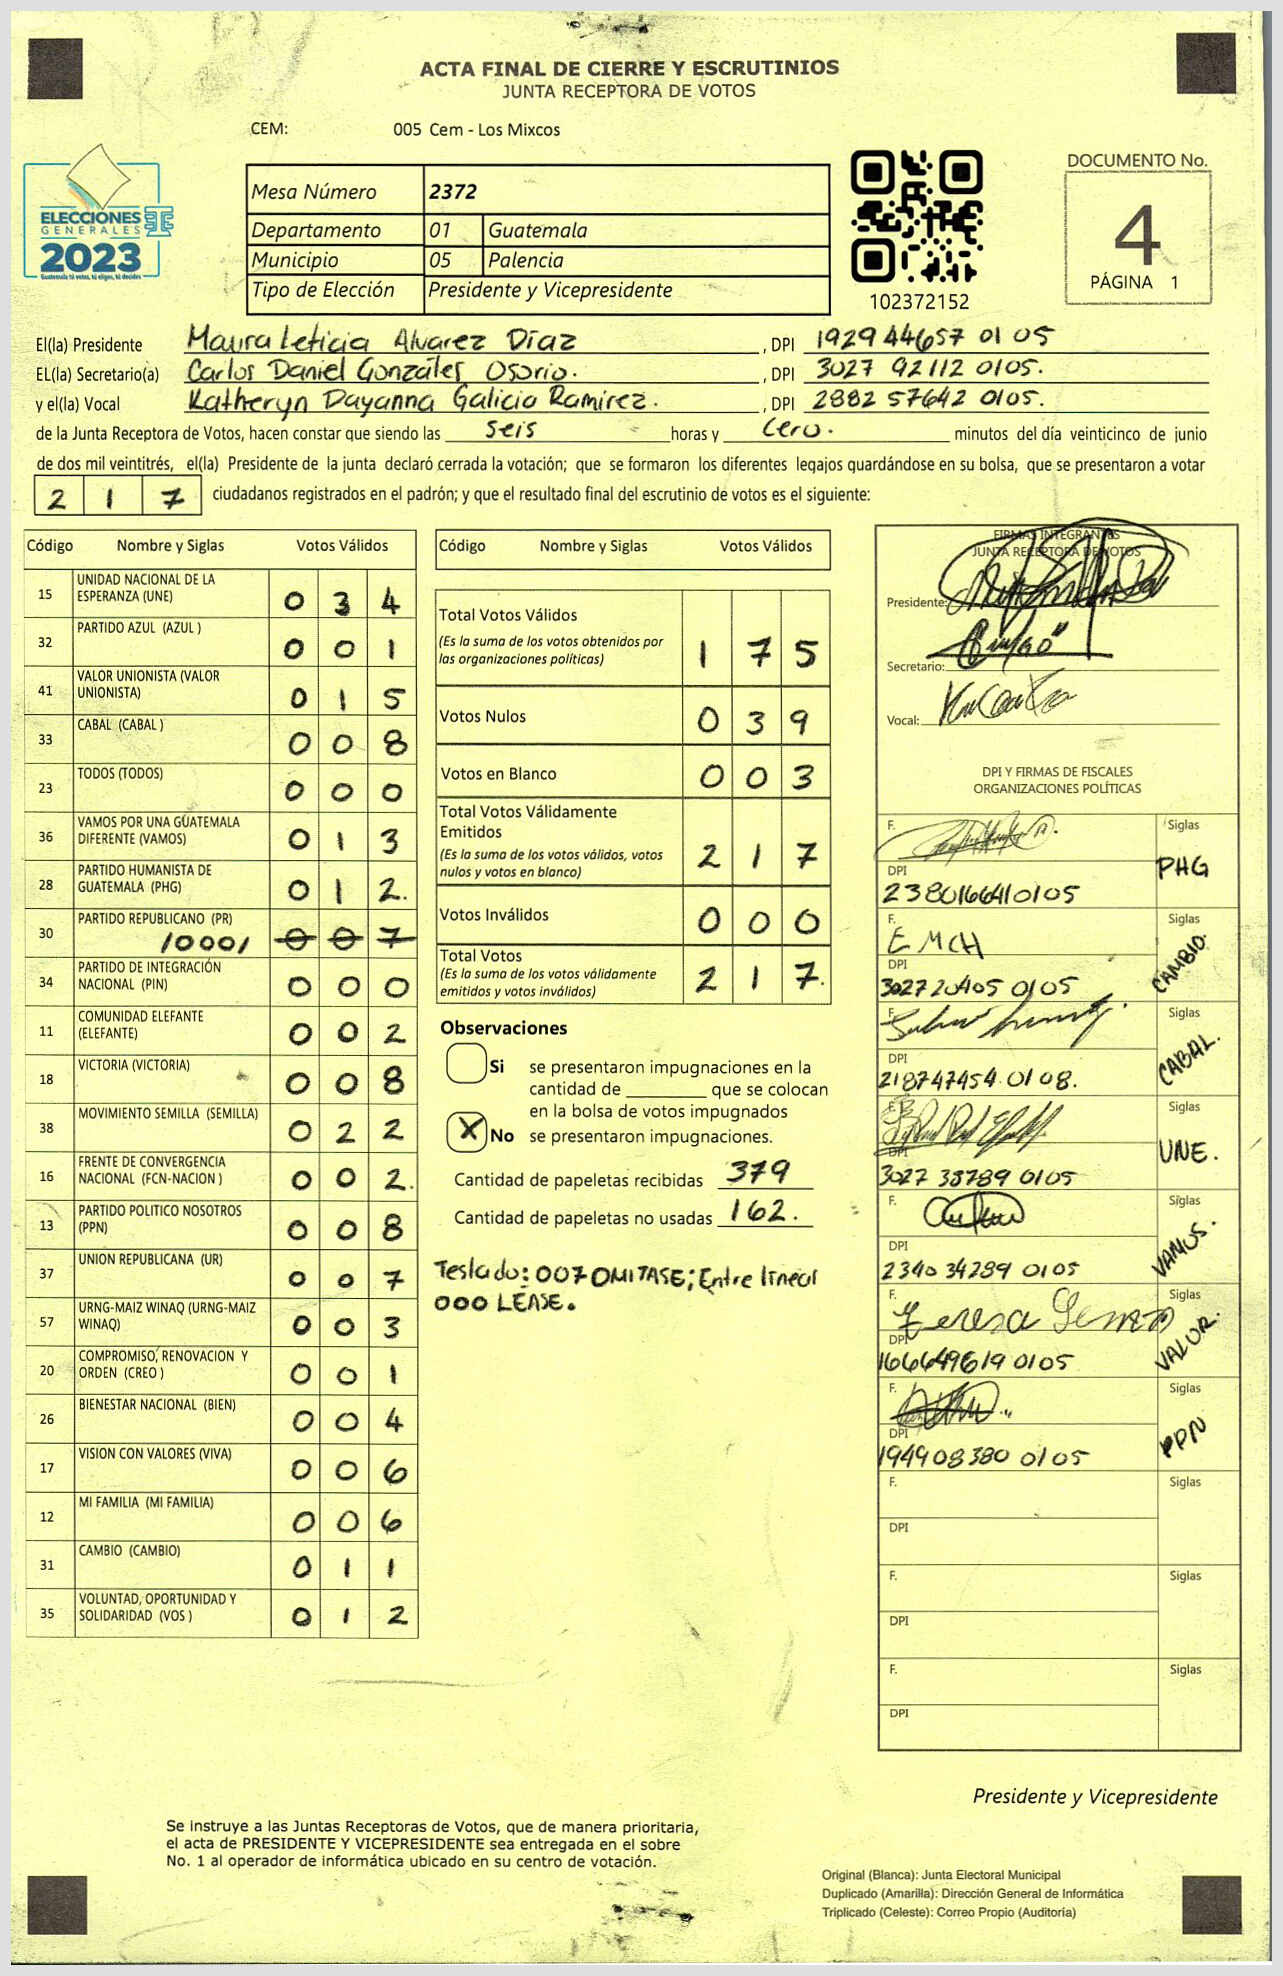 ACTA FINAL DE CIERRE Y ESCRUTINIOS
JUNTA RECEPTORA DE VOTOS
CEM: 005 Cem - Los Mixcos
ELECCIONES
GENERALES
2023
Guatemala tú votas, tú eliges, tú decides
Mesa Número 2372
Departamento 01 Guatemala
Municipio 05 Palencia
Tipo de Elección Presidente y Vicepresidente
102372152
DOCUMENTO No.
4
PÁGINA 1
El(la) Presidente Mayra Leticia Alvarez Díaz, DPI 1929 44657 01 05
EL(la) Secretario(a) Carlos Daniel Gonzáles Osorio., DPI 3027 92112 0105.
y el(la) Vocal Katheryn Dayanna Galicia Ramirez., DPI 2882 57642 0105.
de la Junta Receptora de Votos, hacen constar que siendo las seis horas y cero. minutos del día veinticinco de junio
de dos mil veintitrés, el(la) Presidente de la junta declaró cerrada la votación; que se formaron los diferentes legajos guardándose en su bolsa, que se presentaron a votar
2 1 7 ciudadanos registrados en el padrón; y que el resultado final del escrutinio de votos es el siguiente:
Código Nombre y Siglas Votos Válidos
15 UNIDAD NACIONAL DE LA
ESPERANZA (UNE) 0 3 4
32 PARTIDO AZUL (AZUL ) 0 0 1
41 VALOR UNIONISTA (VALOR
UNIONISTA) 0 1 5
33 CABAL (CABAL ) 0 0 8
23 TODOS (TODOS) 0 0 0
36 VAMOS POR UNA GUATEMALA
DIFERENTE (VAMOS) 0 1 3
28 PARTIDO HUMANISTA DE
GUATEMALA (PHG) 0 1 2.
30 PARTIDO REPUBLICANO (PR)
/000/ 0 0 7
34 PARTIDO DE INTEGRACIÓN
NACIONAL (PIN) 0 0 0
11 COMUNIDAD ELEFANTE
(ELEFANTE) 0 0 2
18 VICTORIA (VICTORIA) 0 0 8
38 MOVIMIENTO SEMILLA (SEMILLA) 0 2 2
16 FRENTE DE CONVERGENCIA
NACIONAL (FCN-NACION ) 0 0 2.
13 PARTIDO POLITICO NOSOTROS
(PPN) 0 0 8
37 UNION REPUBLICANA (UR) 0 0 7
57 URNG-MAIZ WINAQ (URNG-MAIZ
WINAQ) 0 0 3
20 COMPROMISO, RENOVACION Y
ORDEN (CREO ) 0 0 1
26 BIENESTAR NACIONAL (BIEN) 0 0 4
17 VISION CON VALORES (VIVA) 0 0 6
12 MI FAMILIA (MI FAMILIA) 0 0 6
31 CAMBIO (CAMBIO) 0 1 1
35 VOLUNTAD, OPORTUNIDAD Y
SOLIDARIDAD (VOS ) 0 1 2
Código Nombre y Siglas Votos Válidos
Total Votos Válidos
(Es la suma de los votos obtenidos por
las organizaciones políticas) 1 7 5
Votos Nulos 0 3 9
Votos en Blanco 0 0 3
Total Votos Válidamente
Emitidos
(Es la suma de los votos válidos, votos
nulos y votos en blanco) 2 1 7
Votos Inválidos 0 0 0
Total Votos
(Es la suma de los votos válidamente
emitidos y votos inválidos) 2 1 7.
Observaciones
Si se presentaron impugnaciones en la
cantidad de ________ que se colocan
en la bolsa de votos impugnados
X No se presentaron impugnaciones.
Cantidad de papeletas recibidas 379
Cantidad de papeletas no usadas 162.
Testado: 007 OMITASE; Entre lineal
000 LEASE.
FIRMAS INTEGRANTES
JUNTA RECEPTORA DE VOTOS
Presidente:
Secretario:
Vocal:
DPI Y FIRMAS DE FISCALES
ORGANIZACIONES POLÍTICAS
F. Siglas
PHG
DPI
238016641 0105
F. Siglas
EMCH
CAMBIO.
DPI
3027 20405 0105
F. Siglas
CABAL.
DPI
218747454 0108.
F. Siglas
UNE.
DPI
3027 35789 0105
F. Siglas
VAMOS.
DPI
2340 34289 0105
F. Siglas
Teresa
VALOR.
DPI
166649619 0105
F. Siglas
PPN
DPI
194908380 0105
F. Siglas
DPI
F. Siglas
DPI
F. Siglas
DPI
Presidente y Vicepresidente
Se instruye a las Juntas Receptoras de Votos, que de manera prioritaria,
el acta de PRESIDENTE Y VICEPRESIDENTE sea entregada en el sobre
No. 1 al operador de informática ubicado en su centro de votación.
Original (Blanca): Junta Electoral Municipal
Duplicado (Amarilla): Dirección General de Informática
Triplicado (Celeste): Correo Propio (Auditoría)